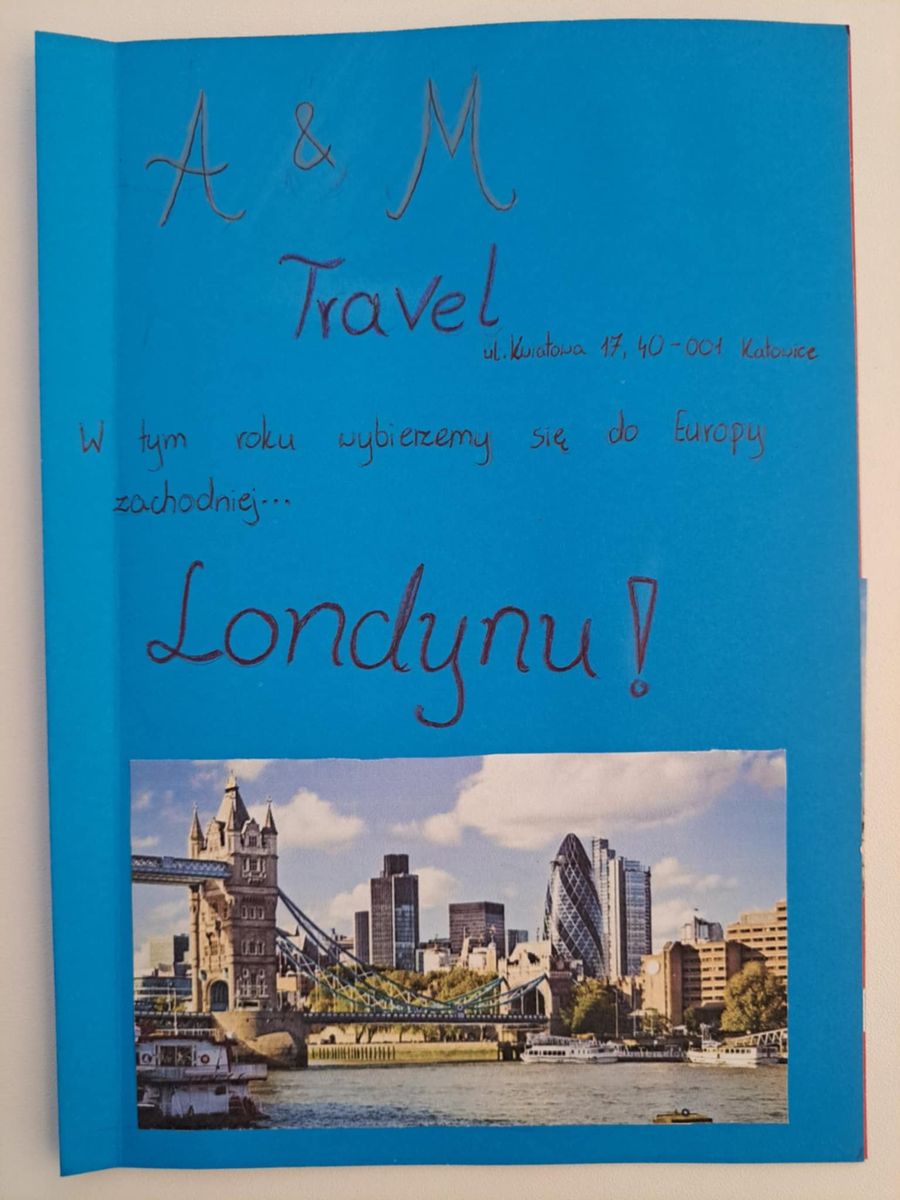 A & M
Travel
ul. Kwiatowa 17, 40-001 Katowice
W tym roku wybierzemy się do Europy
zachodniej...
Londynu!